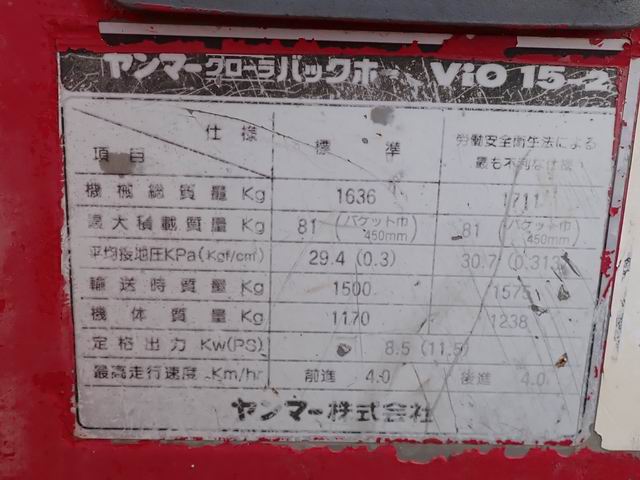 ヤンマークローラバックホー ViO 15-2
仕様
項目
標準
労働安全衛生法による
最も不利な仕様
機械総質量 Kg 1636 1711
最大積載質量 Kg 81 (バケット巾 450mm) 81 (バケット巾 450mm)
平均接地圧KPa(Kgf/cm²) 29.4 (0.3) 30.7 (0.313)
輸送時質量 Kg 1500 1575
機体質量 Kg 1170 1238
定格出力 Kw(PS) 8.5 (11.5)
最高走行速度 Km/hr 前進 4.0 後進 4.0
ヤンマー株式会社